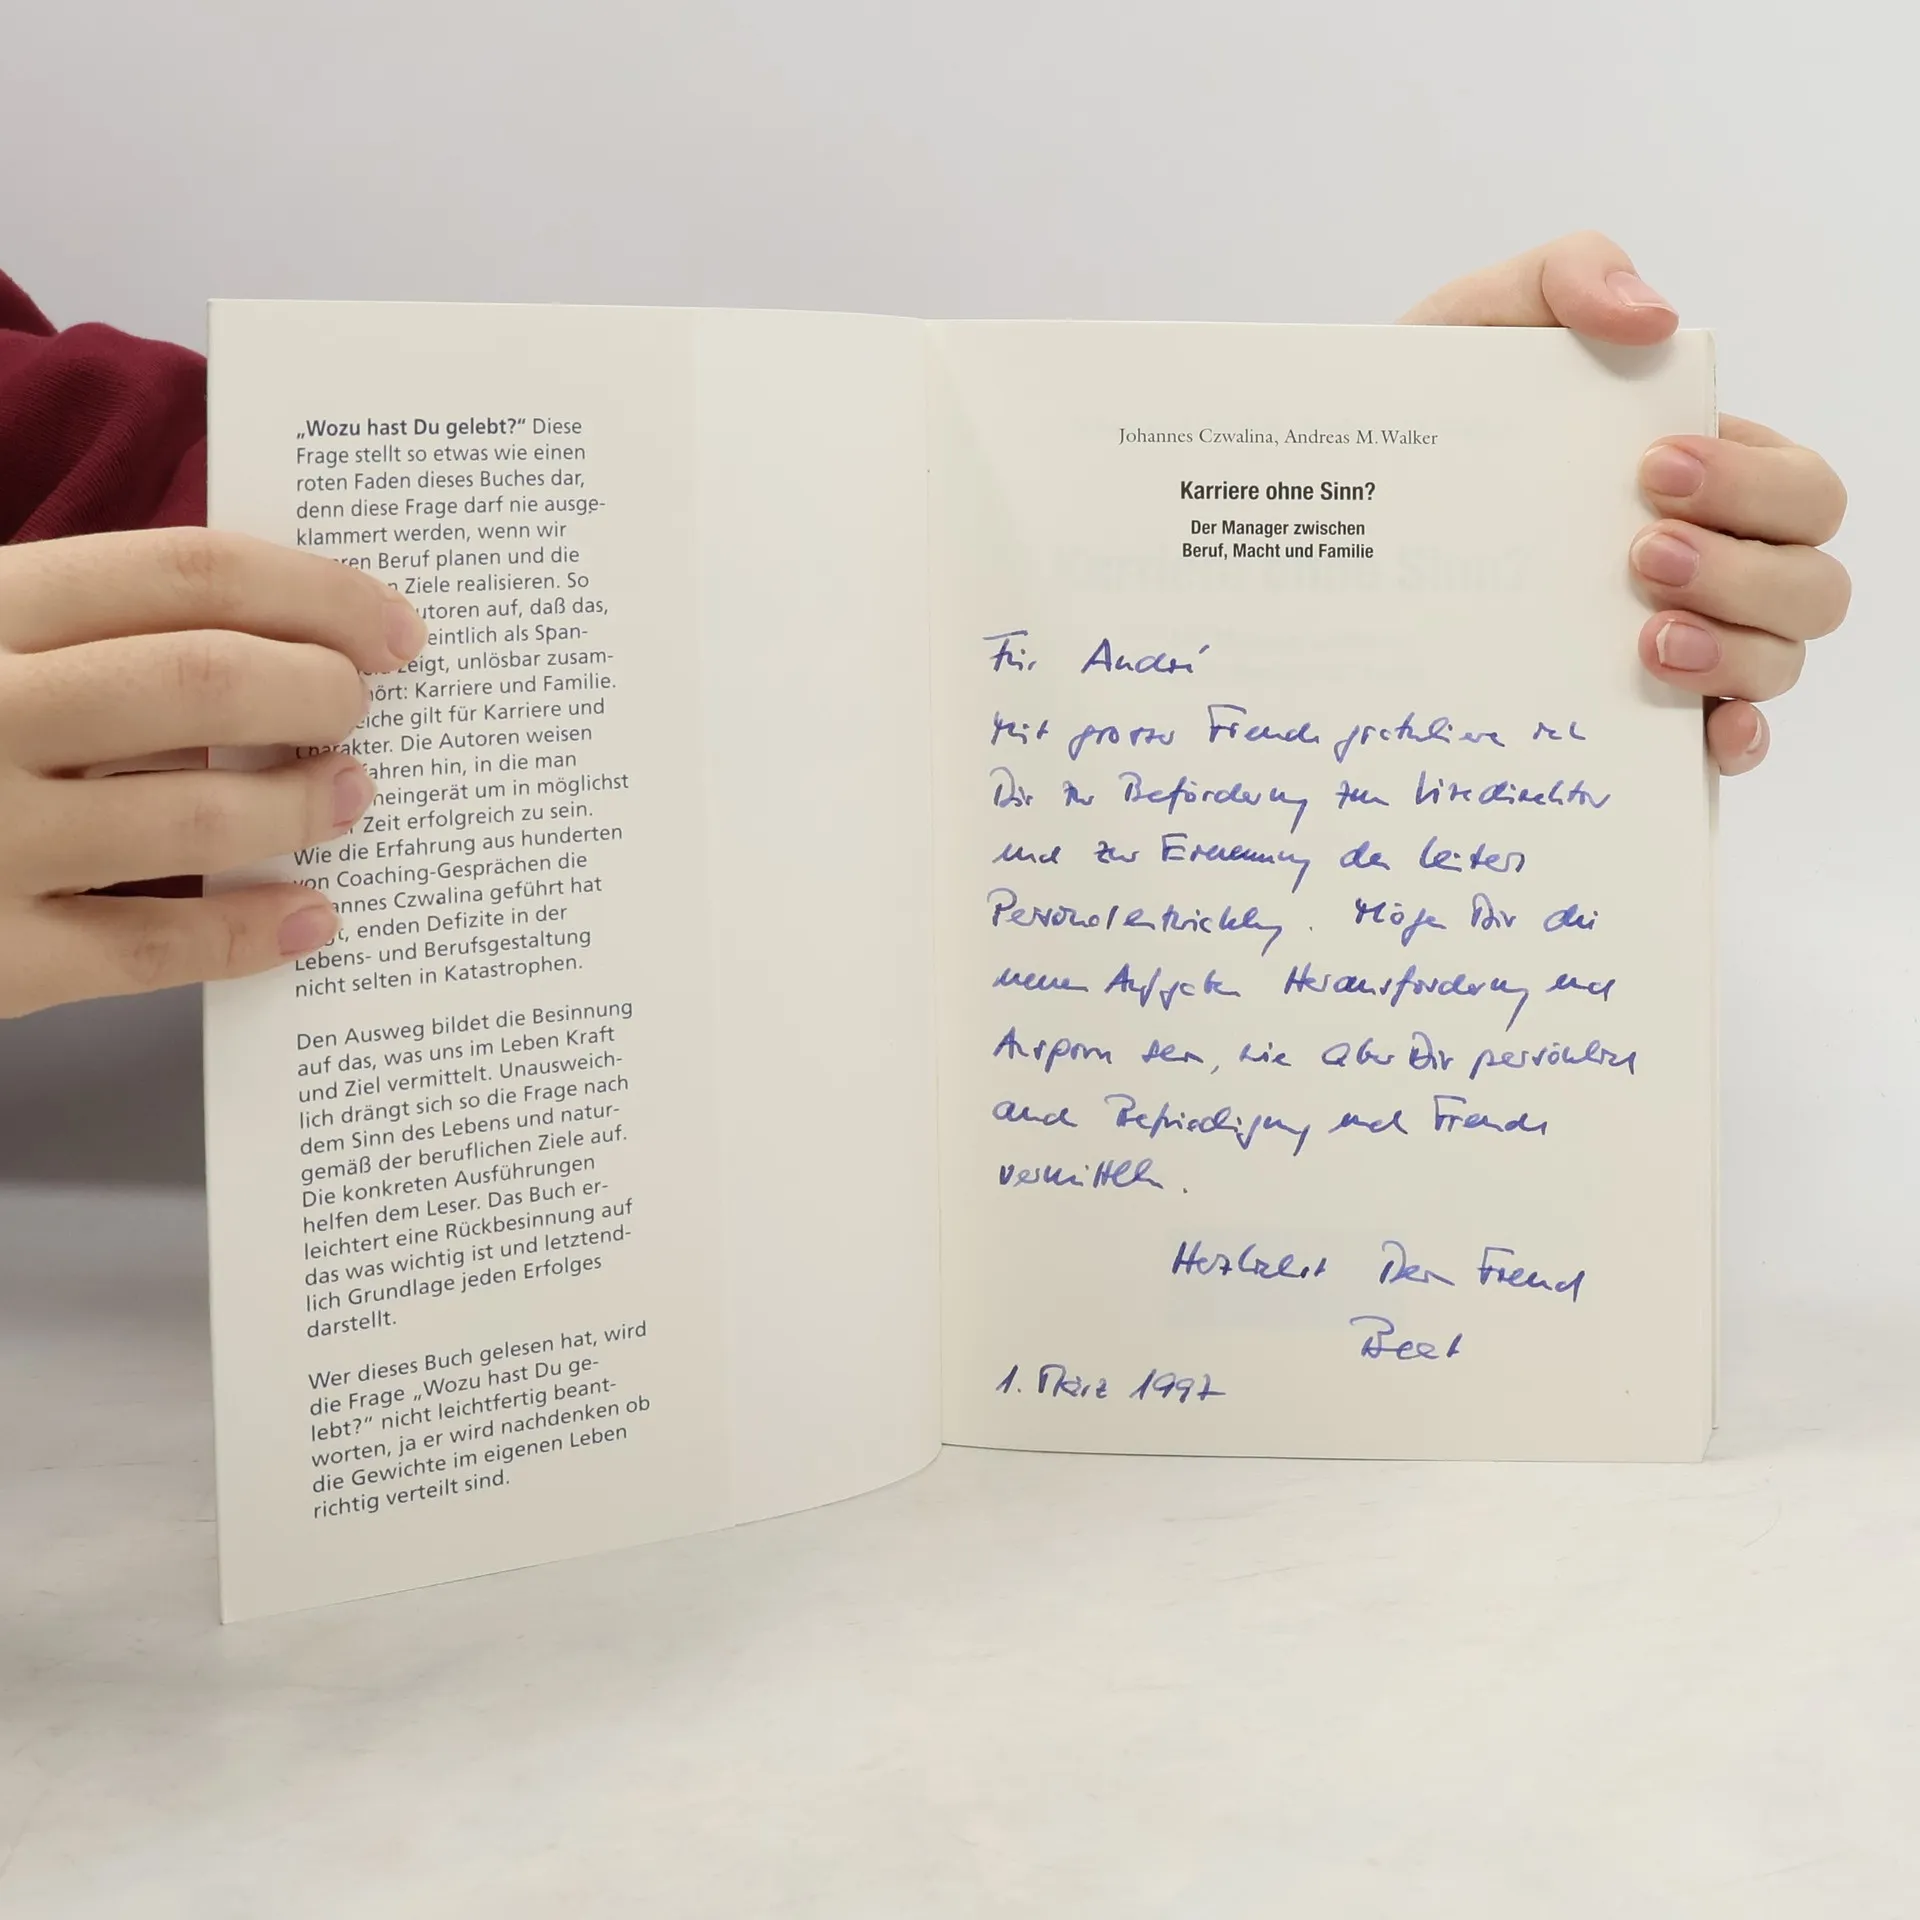 „Wozu hast Du gelebt?“ Diese
Frage stellt so etwas wie einen
roten Faden dieses Buches dar,
denn diese Frage darf nie ausge-
klammert werden, wenn wir
Beruf planen und die
Ziele realisieren. So
auf, daß das,
als Span-
zeigt, unlösbar zusam-
Karriere und Familie.
gilt für Karriere und
Charakter. Die Autoren weisen
hin, in die man
um in möglichst
Zeit erfolgreich zu sein.
Wie die Erfahrung aus hunderten
von Coaching-Gesprächen die
Czwalina geführt hat
enden Defizite in der
Lebens- und Berufsgestaltung
nicht selten in Katastrophen.
Den Ausweg bildet die Besinnung
auf das, was uns im Leben Kraft
und Ziel vermittelt. Unausweich-
lich drängt sich so die Frage nach
dem Sinn des Lebens und natur-
gemäß der beruflichen Ziele auf.
Die konkreten Ausführungen
helfen dem Leser. Das Buch er-
leichtert eine Rückbesinnung auf
das was wichtig ist und letztend-
lich Grundlage jeden Erfolges
darstellt.
Wer dieses Buch gelesen hat, wird
die Frage „Wozu hast Du ge-
lebt?“ nicht leichtfertig beant-
worten, ja er wird nachdenken ob
die Gewichte im eigenen Leben
richtig verteilt sind.
Johannes Czwalina, Andreas M. Walker
Karriere ohne Sinn?
Der Manager zwischen
Beruf, Macht und Familie
Für André
Mit grosser Freude gratuliere ich
Dir zur Beförderung zum Vizedirektor
und zur Ernennung des Leiters
Personalentwicklung. Mögen Dir die
neuen Aufgaben Herausforderung und
Ansporn sein, wie aber Dir persönlich
auch Befriedigung und Freude
vermitteln.
Herzlichst Dein Freund
Beat
1. März 1997